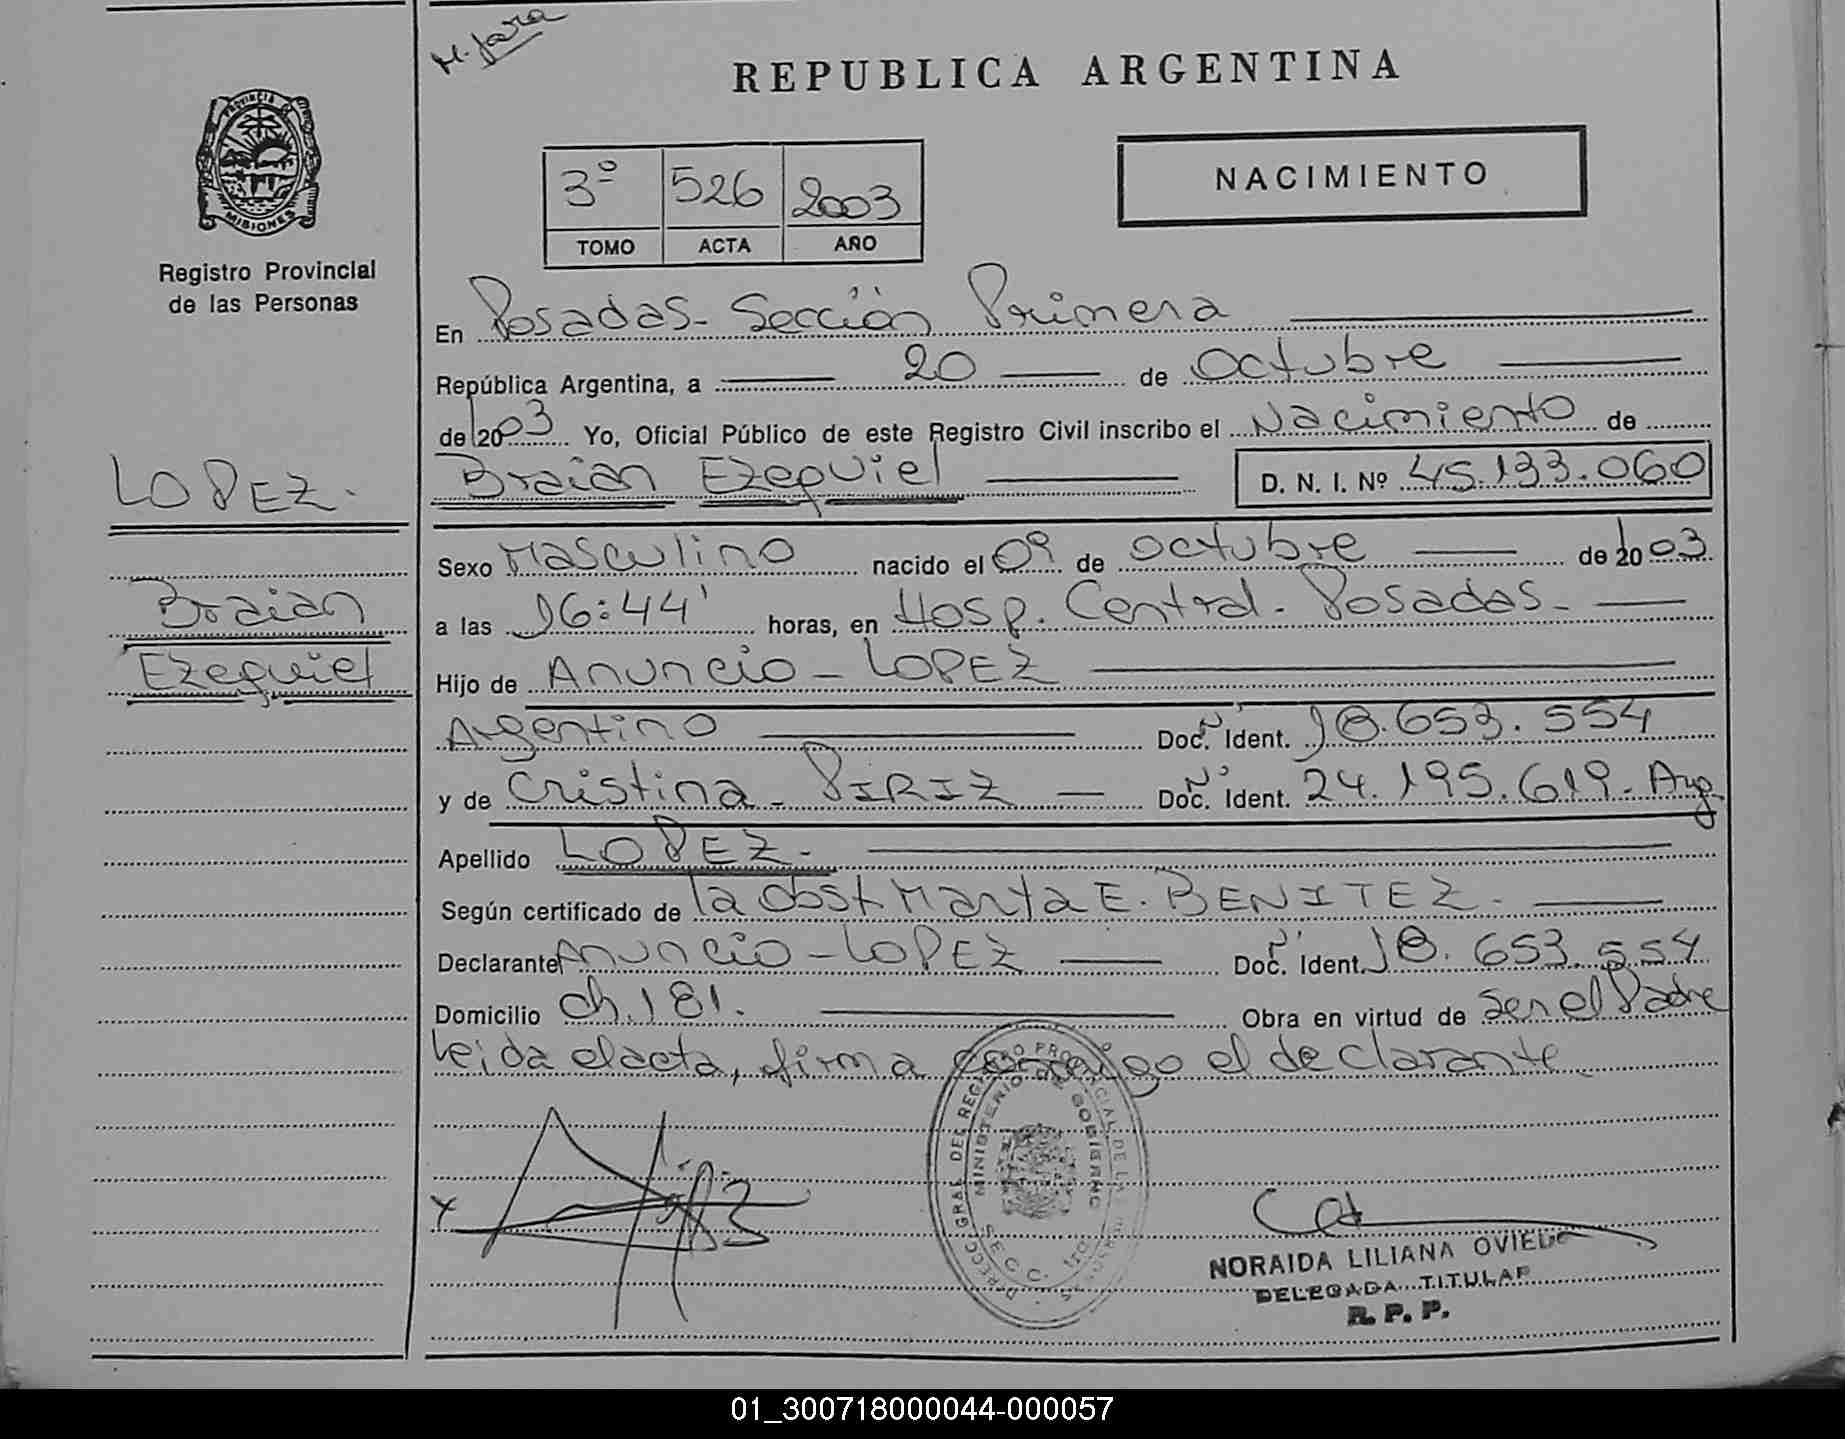 M. Jara
REPUBLICA ARGENTINA
PROVINCIA DE
MISIONES
Registro Provincial
de las Personas
3º 526 2003
TOMO ACTA AÑO
NACIMIENTO
En Posadas - Sección Primera
República Argentina, a 20 de Octubre
de 2003 Yo, Oficial Público de este Registro Civil inscribo el Nacimiento de
LOPEZ.
Braian Ezequiel D. N. I. Nº 45.133.060
Sexo Masculino nacido el 09 de octubre de 2003
Braian
a las 16:44' horas, en Hosp. Central - Posadas -
Ezequiel
Hijo de Anuncio - LOPEZ
Argentino Nº Doc. Ident. 18.653.554
y de Cristina - PIRIZ Nº Doc. Ident. 24.195.619 - Arg
Apellido LOPEZ -
Según certificado de la obst Marta E. BENITEZ -
Declarante Anuncio - LOPEZ Nº Doc. Ident. 18.653.554
Domicilio ch. 181. Obra en virtud de ser el Padre
leida el acta, firma conmigo el declarante
MINISTERIO DE GOBIERNO
x
NORAIDA LILIANA OVIEDO
DELEGADA TITULAR
R. P. P.
01_300718000044-000057